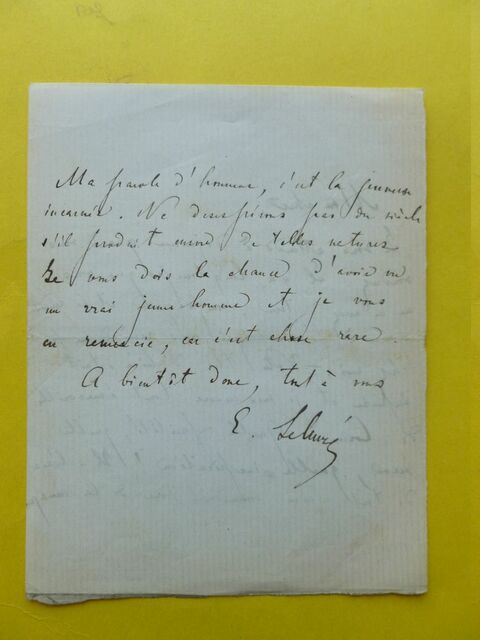 Ma parole d'homme, c'est la jeunesse
incarnée. Ne désespérons pas du siècle
s'il produit encore de telles natures
Je vous dois la chance d'avoir vu
un vrai jeune homme et je vous
en remercie, car c'est chose rare.
A bientôt donc, tout à vous
E.